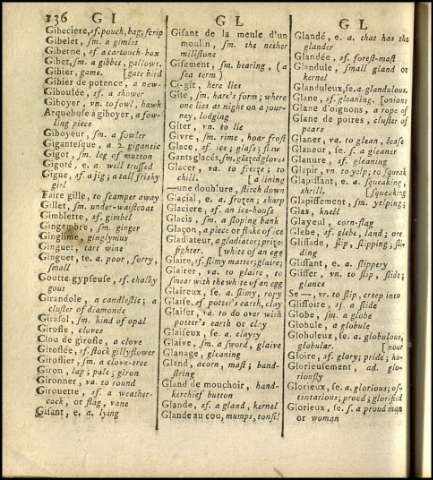 136 G I
Gibeciere, sf. pouch, bag, scrip
Gibelet, sm. a gimlet
Giberne, sf. a cartouch-box
Gibet, sm. a gibbet, gallows.
Gibier, game. gate bird
Gibier de potence, a new-
Giboulée, sf. a shower
Giboyer, vn. to fowl, hawk
Arquebuse à giboyer, a fow-
ling piece
Giboyeur, sm. a fowler
Gigantesque, a 2 gigantic
Gigot, sm. leg of mutton
Gigoté, e. a. well trussed
Gigue, sf. a jig; a tall frisky
girl
Faire gille, to scamper away
Gillet, sm. under-waistcoat
Gimblette, sf. gimbel
Gingembre, sm. ginger
Ginglime, ginglymus
Ginguet, tart wine
Ginguet, te. a. poor, sorry,
small
Goutte gypseuse, sf. chalky
gout
Girandole, a candlestic; a
cluster of diamonds
Girasol, sm. kind of opal
Girofle, cloves
Clou de girofle, a clove
Giroflée, sf. stock gillyflower
Giroflier, sm. a clove-tree
Giron, lap; pale; giron
Gironner, va. to round
Girouette, sf. a weather-
cock, or flag, vane
Gisant, e. a. lying
G L
Gisant de la meule d'un
moulin, sm. the nether
millstone
Gisement, sm. bearing, (a
sea term)
Ci-git, here lies
Gite, sm. hare's form; where
one lies at night on a jour-
ney, lodging
Giter, vn. to lie
Givre, sm. rime, hoar frost
Glace, sf. ice; glass; flaw
Gants glacés, sm. glazed gloves
Glacer, va. to freeze; to
chill. [a lining
—une doublure, stitch down
Glacial, e. a. frozen; sharp
Glaciere, sf. an ice-house
Glacis, sm. a sloping bank
Glaçon, a piece or flake of ice
Gladiateur, a gladiator; prize
fighter. [white of an egg
Glaire, sf. slimy matter; glaire;
Glairer, va. to glaire, to
smear with the white of an egg
Glaireux, se a. slimy, ropy
Glaise, sf. potter's earth, clay
Glaiser, va. to do over with
potter's earth or clay
Glaiseux, se a. clayey
Glaive, sm. a sword, glaive
Glanage, gleaning
Gland, acorn, mast; band-
string
Gland de mouchoir, hand-
kerchief button
Glande, sf. a gland, kernel
Glande au cou, mumps, tonsil
G L
Glandé, e. a. that has the
glander
Glandée, sf. forest-mast
Glandule, small gland or
kernel
Glanduleux, se. a. glandulous.
Glane, sf. gleaning. [onions
Glane d'oignons, a rope of
Glane de poires, cluster of
pears
Glaner, va. to glean, lease
Glaneur, se. f. a gleaner
Glanure, sf. gleaning
Glapir, vn. to yelp, to squeak
Glapissant, e. a. squeaking,
shrill. [squeaking
Glapissement, sm. yelping;
Glas, knell
Glayeul, corn-flag
Glebe, sf. glebe, land; ore
Glissade, slip, slipping, sli-
ding
Glissant, e. a. slippery
Glisser, vn. to slip, slide;
glance
Se —, vr. to slip, creep into
Glissoire, sf. a slide
Globe, sm. a globe
Globule, a globule
Globuleux, se. a. globulous,
globular.
Gloire, sf. glory; pride; ho-
Glorieusement, ad. glo-
riously
Glorieux, se. a. glorious; os-
tentatious, proud; glorified
Glorieux, se. f. a proud man
or woman